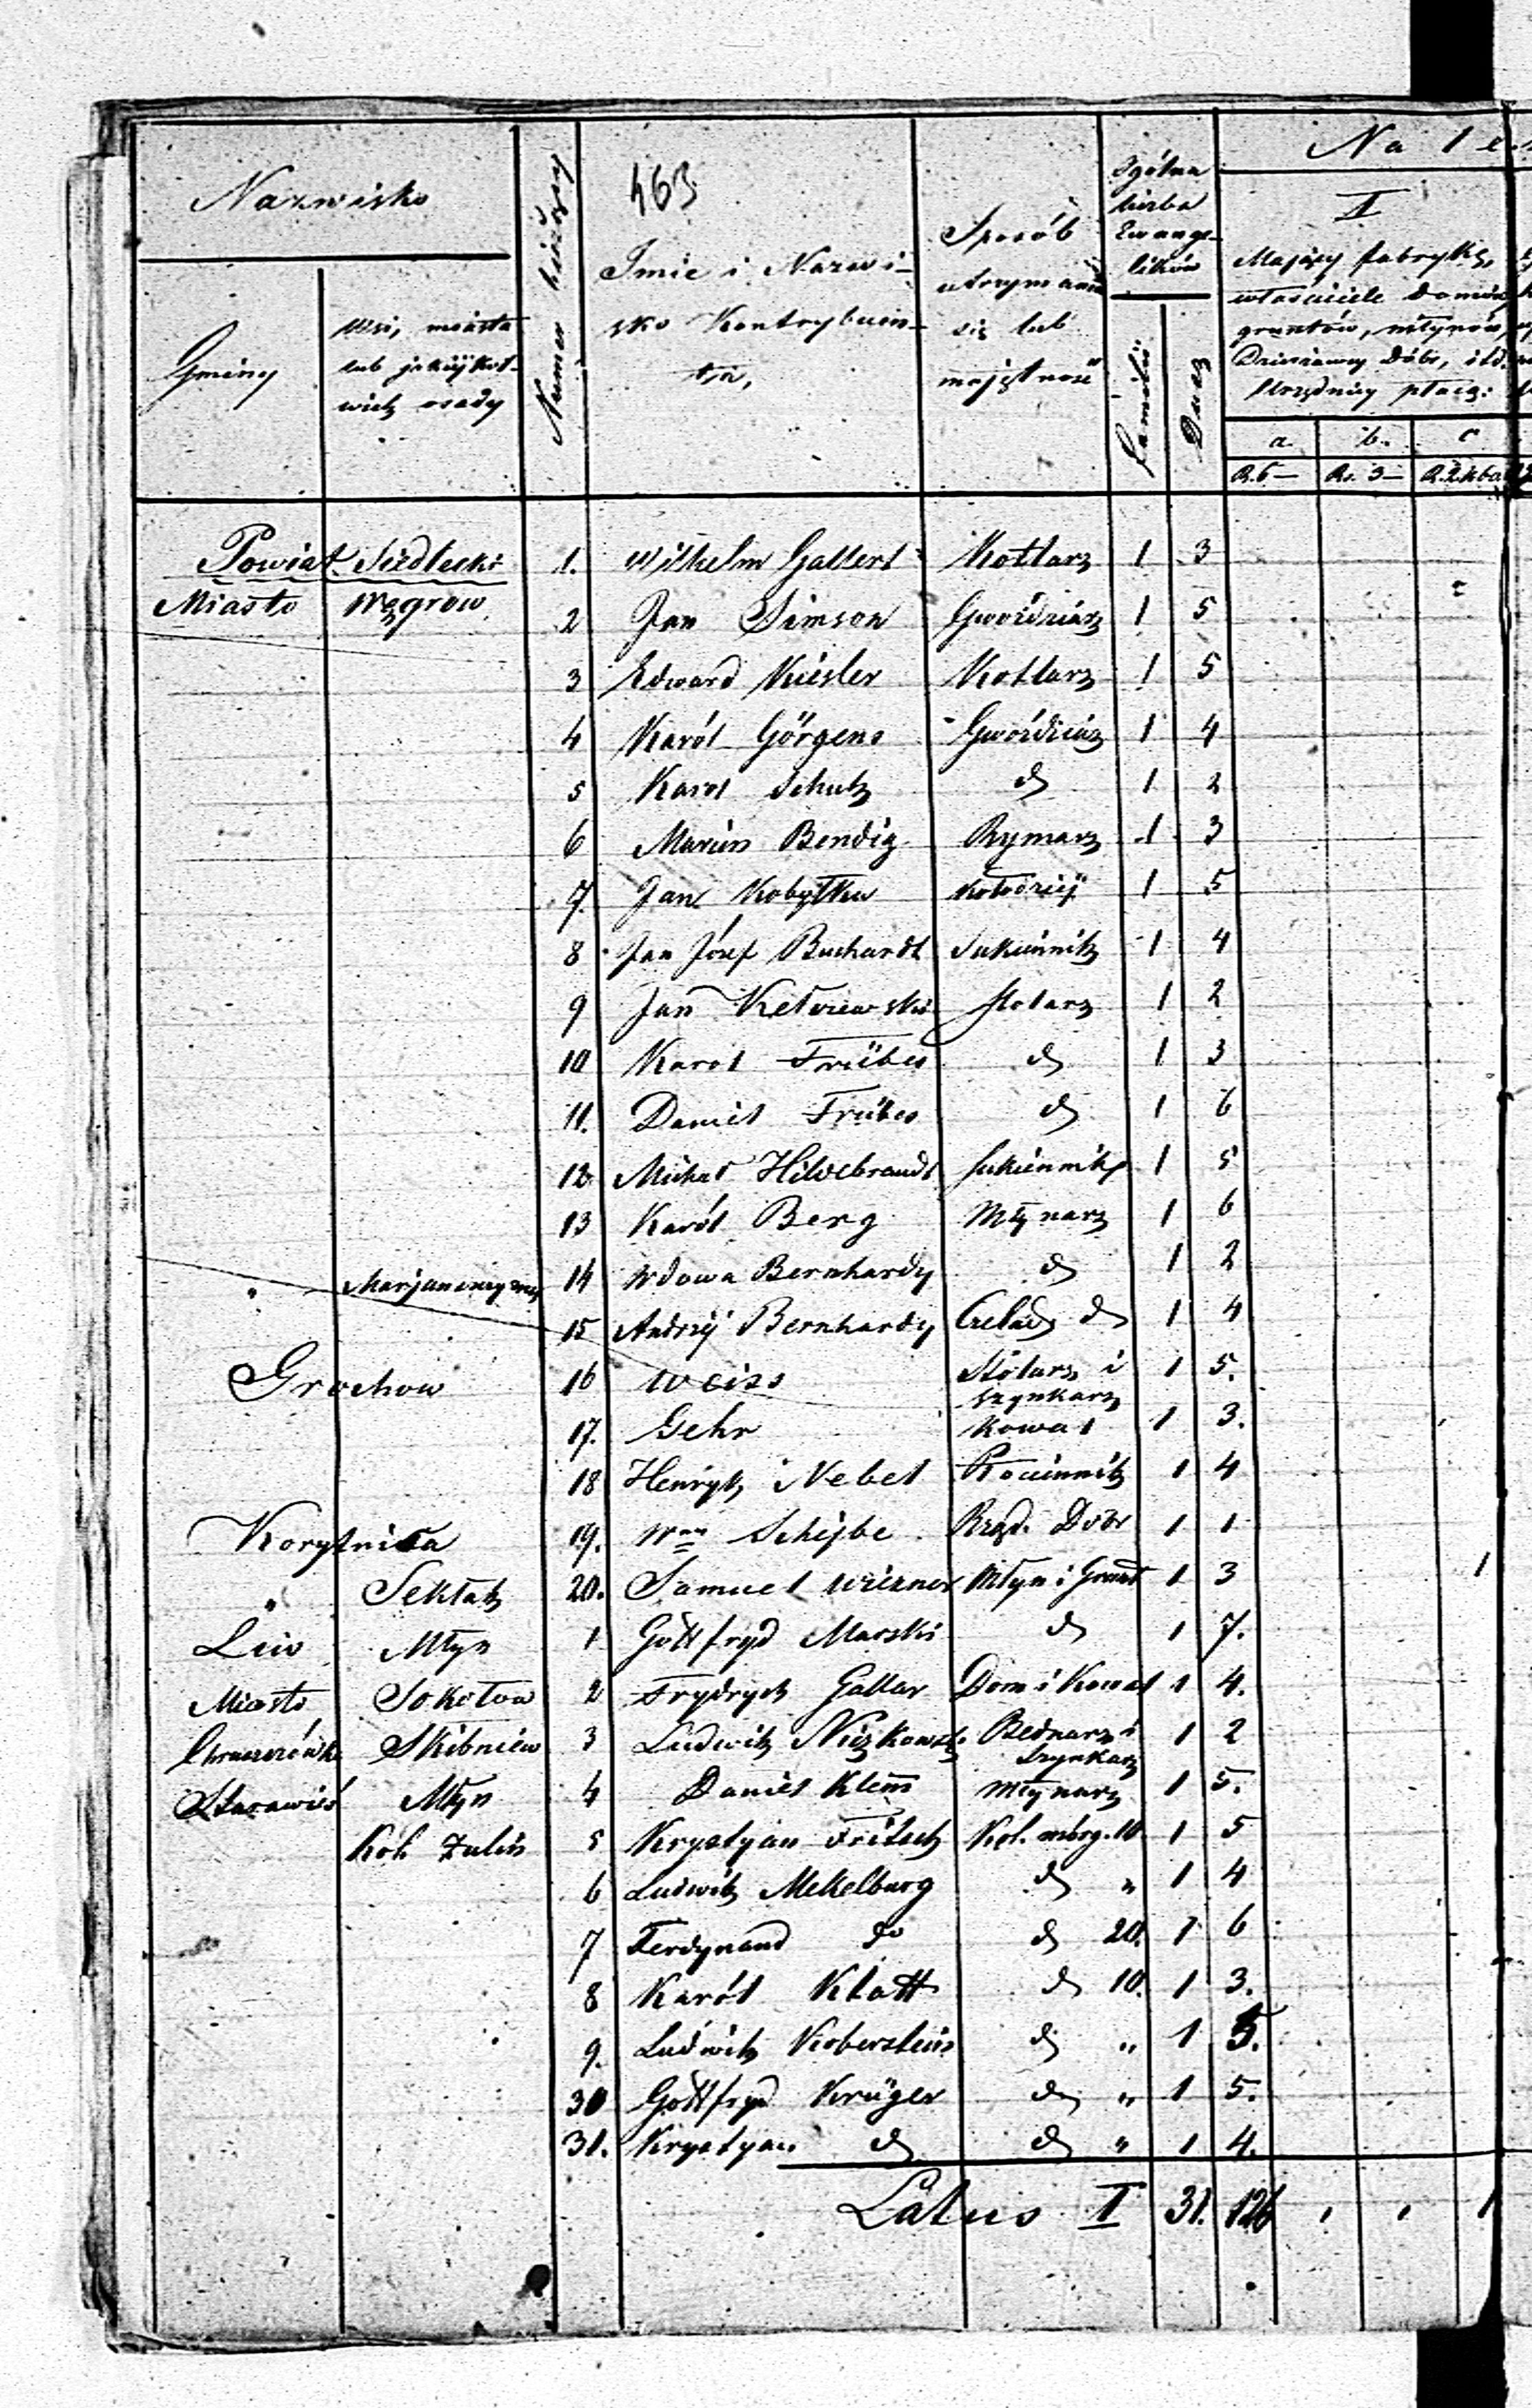 463
Nazwisko
Gminy
Wsi, miasta
lub jakiejkol-
wiek osady
Numer bieżący
Imie i Nazwi-
sko Kontrybuen-
ta,
Sposób
utrzymania
się lub
majętność
Ogólna
liczba
Ewange-
lików
Familii
Dusz
Na 1
I
Mający fabrykę,
właściciele domów,
gruntów, młynów,
Dzierżawcy dóbr, itd.
Urzędnicy płacą:
a. b. c
R. 6— Rs. 3— R. 1 kba
Powiat Siedlecki 1. Wilhelm Gallert Kotlarz 1 3
Miasto Węgrow 2 Jan Simson Gwoździarz 1 5
3 Edward Kiesler Kotlarz 1 5
4 Karól Görgens Gwoździarz 1 4
5 Karol Schutz d 1 2
6 Marcin Bendig Rymarz 1 3
7. Jan Kobyłka Kołodziej 1 5
8 Jan Józef Buchardt Sukiennik 1 4
9 Jan Kelviewski stolarz 1 2
10 Karol Frübes d 1 3
11. Daniel Frübes d 1 6
12 Michał Hildebrandt sukiennik 1 5
13 Karól Berg Młynarz 1 6
Marjanczyzny 14 Wdowa Bernhardy d 1 2
15 Andrzej Bernhardy Czeladz d 1 4
Grochow 16 Weiss Stolarz i szynkarz 1 5.
17. Gehr Kowal 1 3.
18 Henryk Nebel 1 4
Korytnica 19. Wny Schejbe Rząd. Dóbr 1 1
" Sekłak 20. Samuel Wiezner Młyn i Grunt 1 3 1
Liw Młyn 1 Gottfryd Marski d 1 7.
Miasto Sokołow 2 Frydrych Gallar Dom i Kowal 1 4.
Skibniew 3 Ludwik Nieżkowski Bednarz i szynkarz 1 2
Starawieś Młyn 4 Daniel Klem Młynarz 1 5.
Kol. Zulin 5 Krystyan Fritsch Kol. mórg. 10 1 5
6 Ludwik Mekelburg d " 1 4
7 Ferdynand do d 20. 1 6
8 Karól Klatt d 10. 1 3.
9. Ludwik Koberstein d " 1 5.
30 Gottfryd Krüger d " 1 5.
31. Krystyan d d " 1 4.
Latus I 31. 126 " " 1